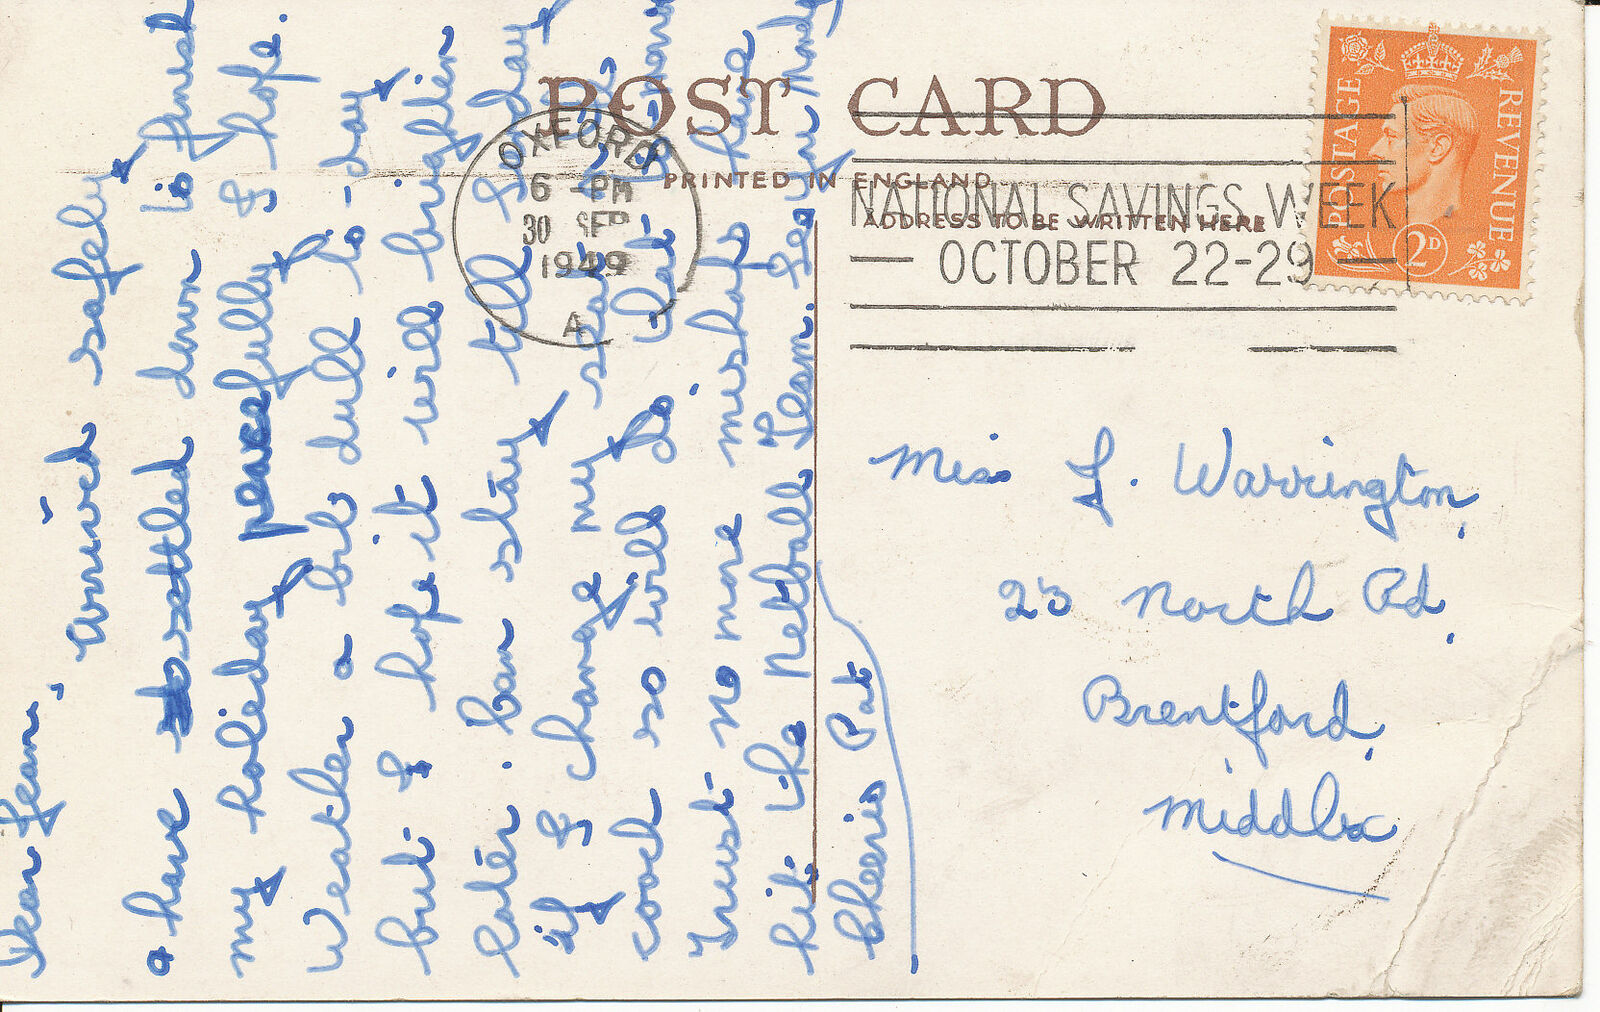 POST CARD
PRINTED IN ENGLAND
ADDRESS TO BE WRITTEN HERE
OXFORD
6 - PM
30 SEP
1949
A
NATIONAL SAVINGS WEEK
OCTOBER 22-29
POSTAGE
REVENUE
2D
Dear Jean, Arrived safely
& have settled down to finish
my holiday peacefully I hope.
Weather a bit dull to-day
but I hope it will brighten
later. Can stay till Sunday
if I change my seat,
coach so will do that
Trust no more mishaps have
hit the Netball Team. See you Monday
Cheerio Pat
Miss J. Warrington,
23 North Rd,
Brentford,
Middlex